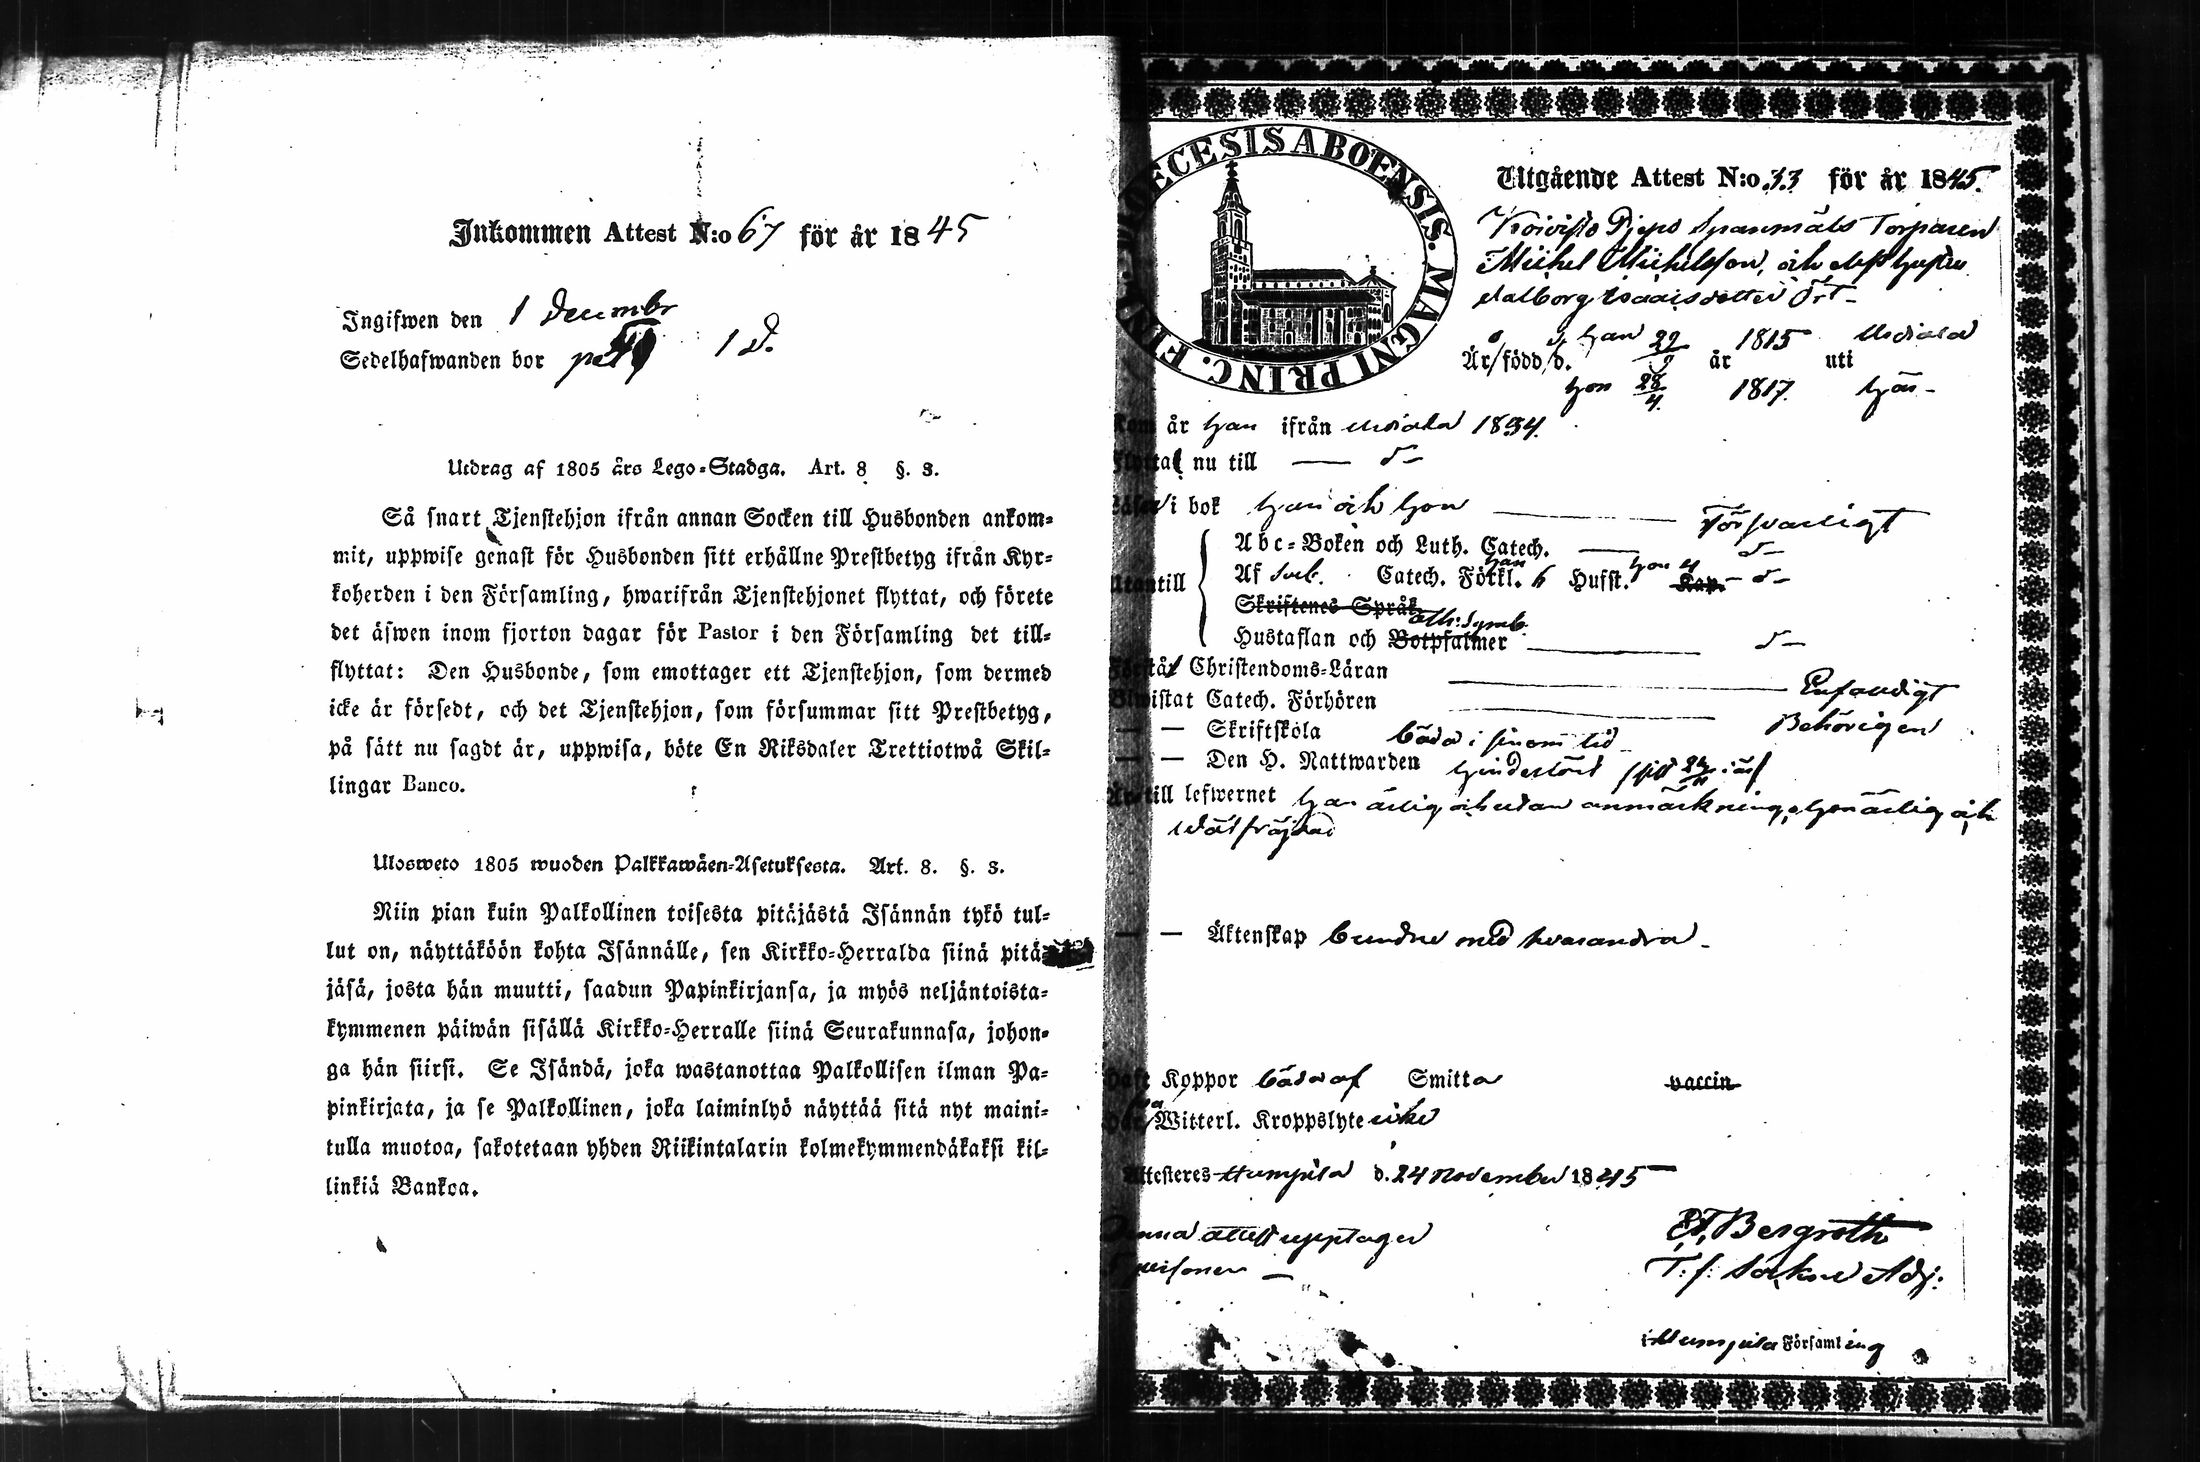 Inkommen Attest N:o 67 för år 1845
Ingifwen den 1 Decembr
Sedelhafwanden bor på 1 d.
Utdrag af 1805 års Lego-Stadga. Art. 8 §. 3.
Så snart Tjenstehjon ifrån annan Socken till Husbonden ankom-
mit, uppwise genast för Husbonden sitt erhållne Prestbetyg ifrån Kyr-
koherden i den Församling, hwarifrån Tjenstehjonet flyttat, och förete
det äfwen inom fjorton dagar för Pastor i den Församling det till-
flyttat: Den Husbonde, som emottager ett Tjenstehjon, som dermed
icke är försedt, och det Tjenstehjon, som försummar sitt Prestbetyg,
på sätt nu sagdt är, uppwisa, böte En Riksdaler Trettiotwå Skil-
lingar Banco.
Ulosweto 1805 wuoden Palkkawäen-Asetuksesta. Art. 8. §. 3.
Niin pian kuin Palkollinen toisesta pitäjästä Isännän tykö tul-
lut on, näyttäköön kohta Isännälle, sen Kirkko-Herralda siinä pitä-
jäsä, josta hän muutti, saadun Papinkirjansa, ja myös neljäntoista-
kymmenen päiwän sisällä Kirkko-Herralle siinä Seurakunnasa, johon-
ga hän siirsi. Se Isändä, joka wastanottaa Palkollisen ilman Pa-
pinkirjata, ja se Palkollinen, joka laiminlyö näyttää sitä nyt maini-
tulla muotoa, sakotetaan yhden Riikintalarin kolmekymmendäkaksi kil-
linkiä Bankoa.
DIOECESIS ABOENSIS. MAGNI PRINC. FINL.
Utgående Attest N:o 33 för år 1845.
Koivisto Spanmåls Torparen
Michel Michelsson, och dess hustru
Walborg Isaacsdotter
han 29/9 1815 Urdiala
Är född d. år uti
hon 28/4. 1817. här
Kom år han ifrån Urdiala 1834.
Flyttat nu till — d—
Läser i bok han och hon — Försvarligt
Utantill
Abc-Boken och Luth. Catech. — d—
Af Sveb. Catech. Förkl. han 6 Hufst. hon 4 Kap. d—
Skriftenes Språk
Hustaflan och Botpsalmer Ath: Symb. — d—
Förstår Christendoms-Läran — Enfaldigt
Biwistat Catech. Förhören — Behörigen
— — Skriftskola båda i sinom tid
— — Den H. Nattwarden sist i år
Är till lefwernet han ärlig och utan anmärkning, hon ärlig och
wälfräjdad
— — Äktenskap bundne med hwarandra
Haft Koppor båda af Smitta vaccin
Har Witterl. Kroppslyte icke
Attesteres Humpila d. 24 November 1845
Denna attest upptager
personer —
Bergroth
T. f. Sockne Adj.
i Humpila Församling